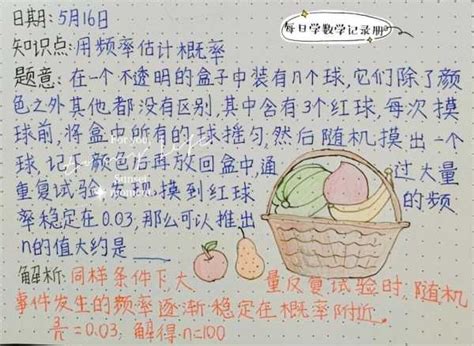 日期:5月16日
每日学数学记录册
知识点:用频率估计概率
题意:在一个不透明的盒子中装有n个球,它们除了颜
色之外其他都没有区别,其中含有3个红球,每次摸
球前,将盒中所有的球摇匀,然后随机摸出一个
球,记下颜色后再放回盒中,通过大量
重复试验,发现,摸到红球的频
率稳定在0.03,那么可以推出
n的值大约是
解析:同样条件下,大量反复试验时,随机
事件发生的频率逐渐稳定在概率附近.
3/n=0.03,解得n=100
For you
Sunset